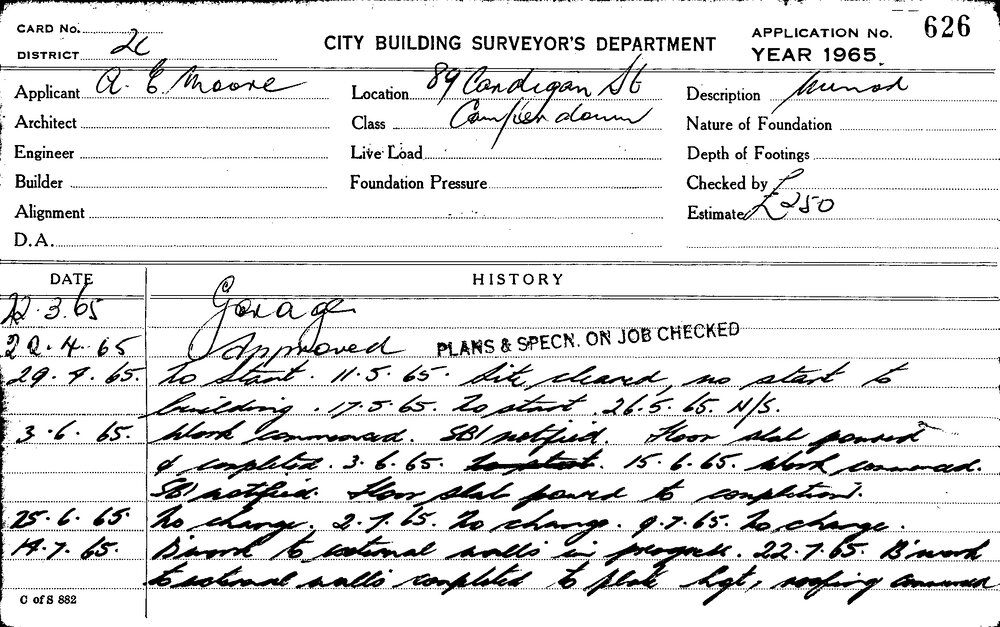 CARD No.
DISTRICT 2C
CITY BUILDING SURVEYOR'S DEPARTMENT
APPLICATION No. 626
YEAR 1965.
Applicant A. E. Moore
Location 89 Cardigan St
Description Minor
Architect
Class Camperdown
Nature of Foundation
Engineer
Live Load
Depth of Footings
Builder
Foundation Pressure
Checked by
Alignment
Estimate £250
D.A.
DATE
HISTORY
22.3.65 Garage
22.4.65 Approved PLANS & SPECN. ON JOB CHECKED
29.4.65. No start. 11.5.65. Site cleared, no start to
building. 17.5.65. No start. 26.5.65. N/S.
3.6.65. Work commenced. SBI notified. Floor slab poured
& completed. 3.6.65. No start. 15.6.65. Work commenced.
SBI notified. Floor slab poured to completion.
25.6.65. No change. 2.7.65. No change. 9.7.65. No change.
14.7.65. B'work to external walls in progress. 22.7.65. B'work
to external walls completed to plate hgt, roofing commenced
C of S 882